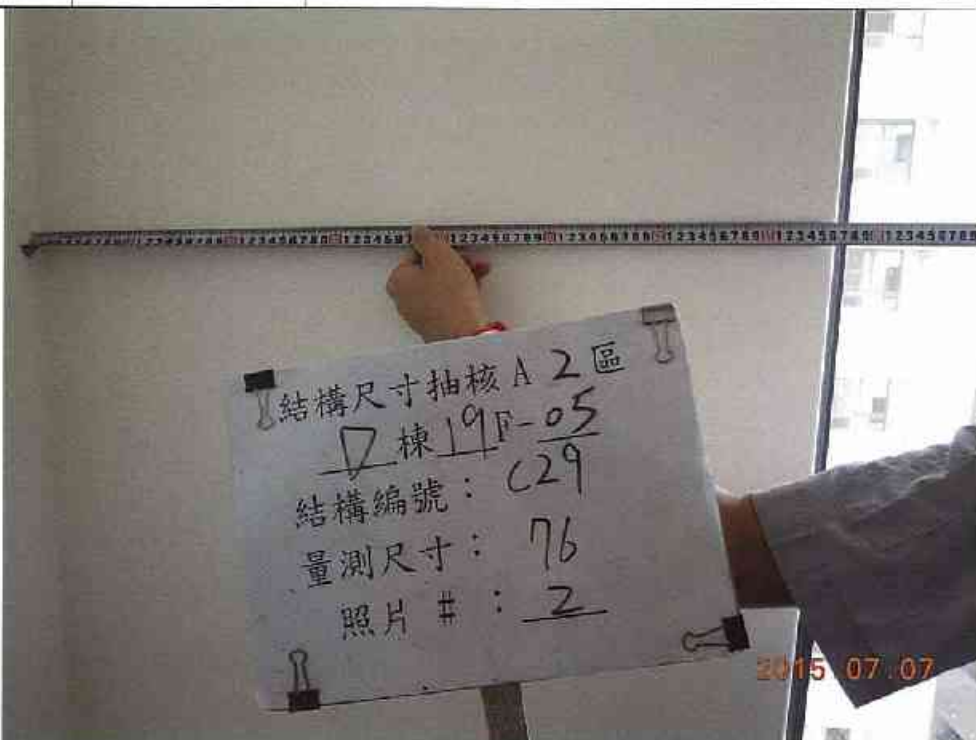 結構尺寸抽核 A 2 區
D 棟 19F-05
結構編號：C29
量測尺寸：76
照片 #：2
2015.07.07